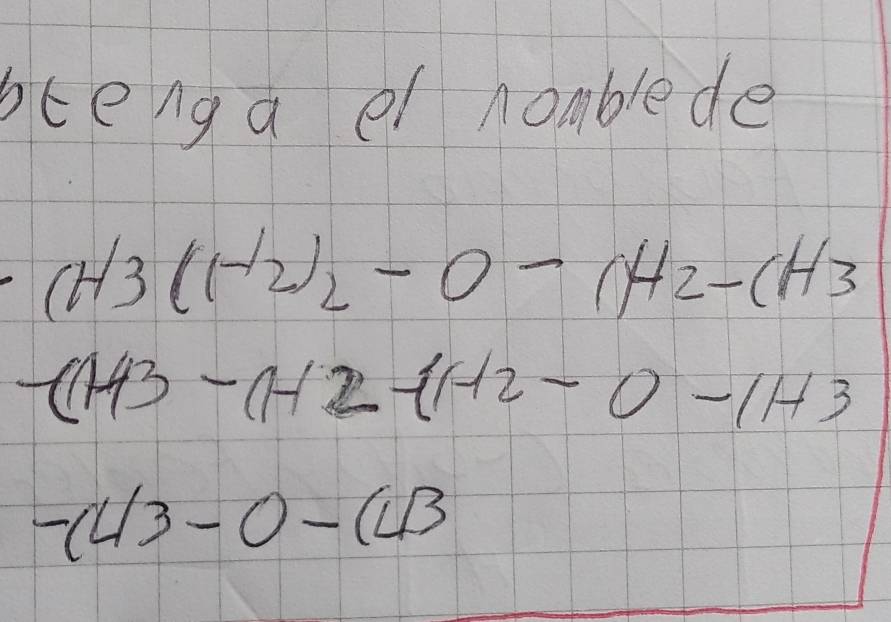 btenga el nomblede
- CH3(CH2)2 - O - CH2-CH3
-CH3 -CH2 -CH2 - O -CH3
-CH3-O-CH3